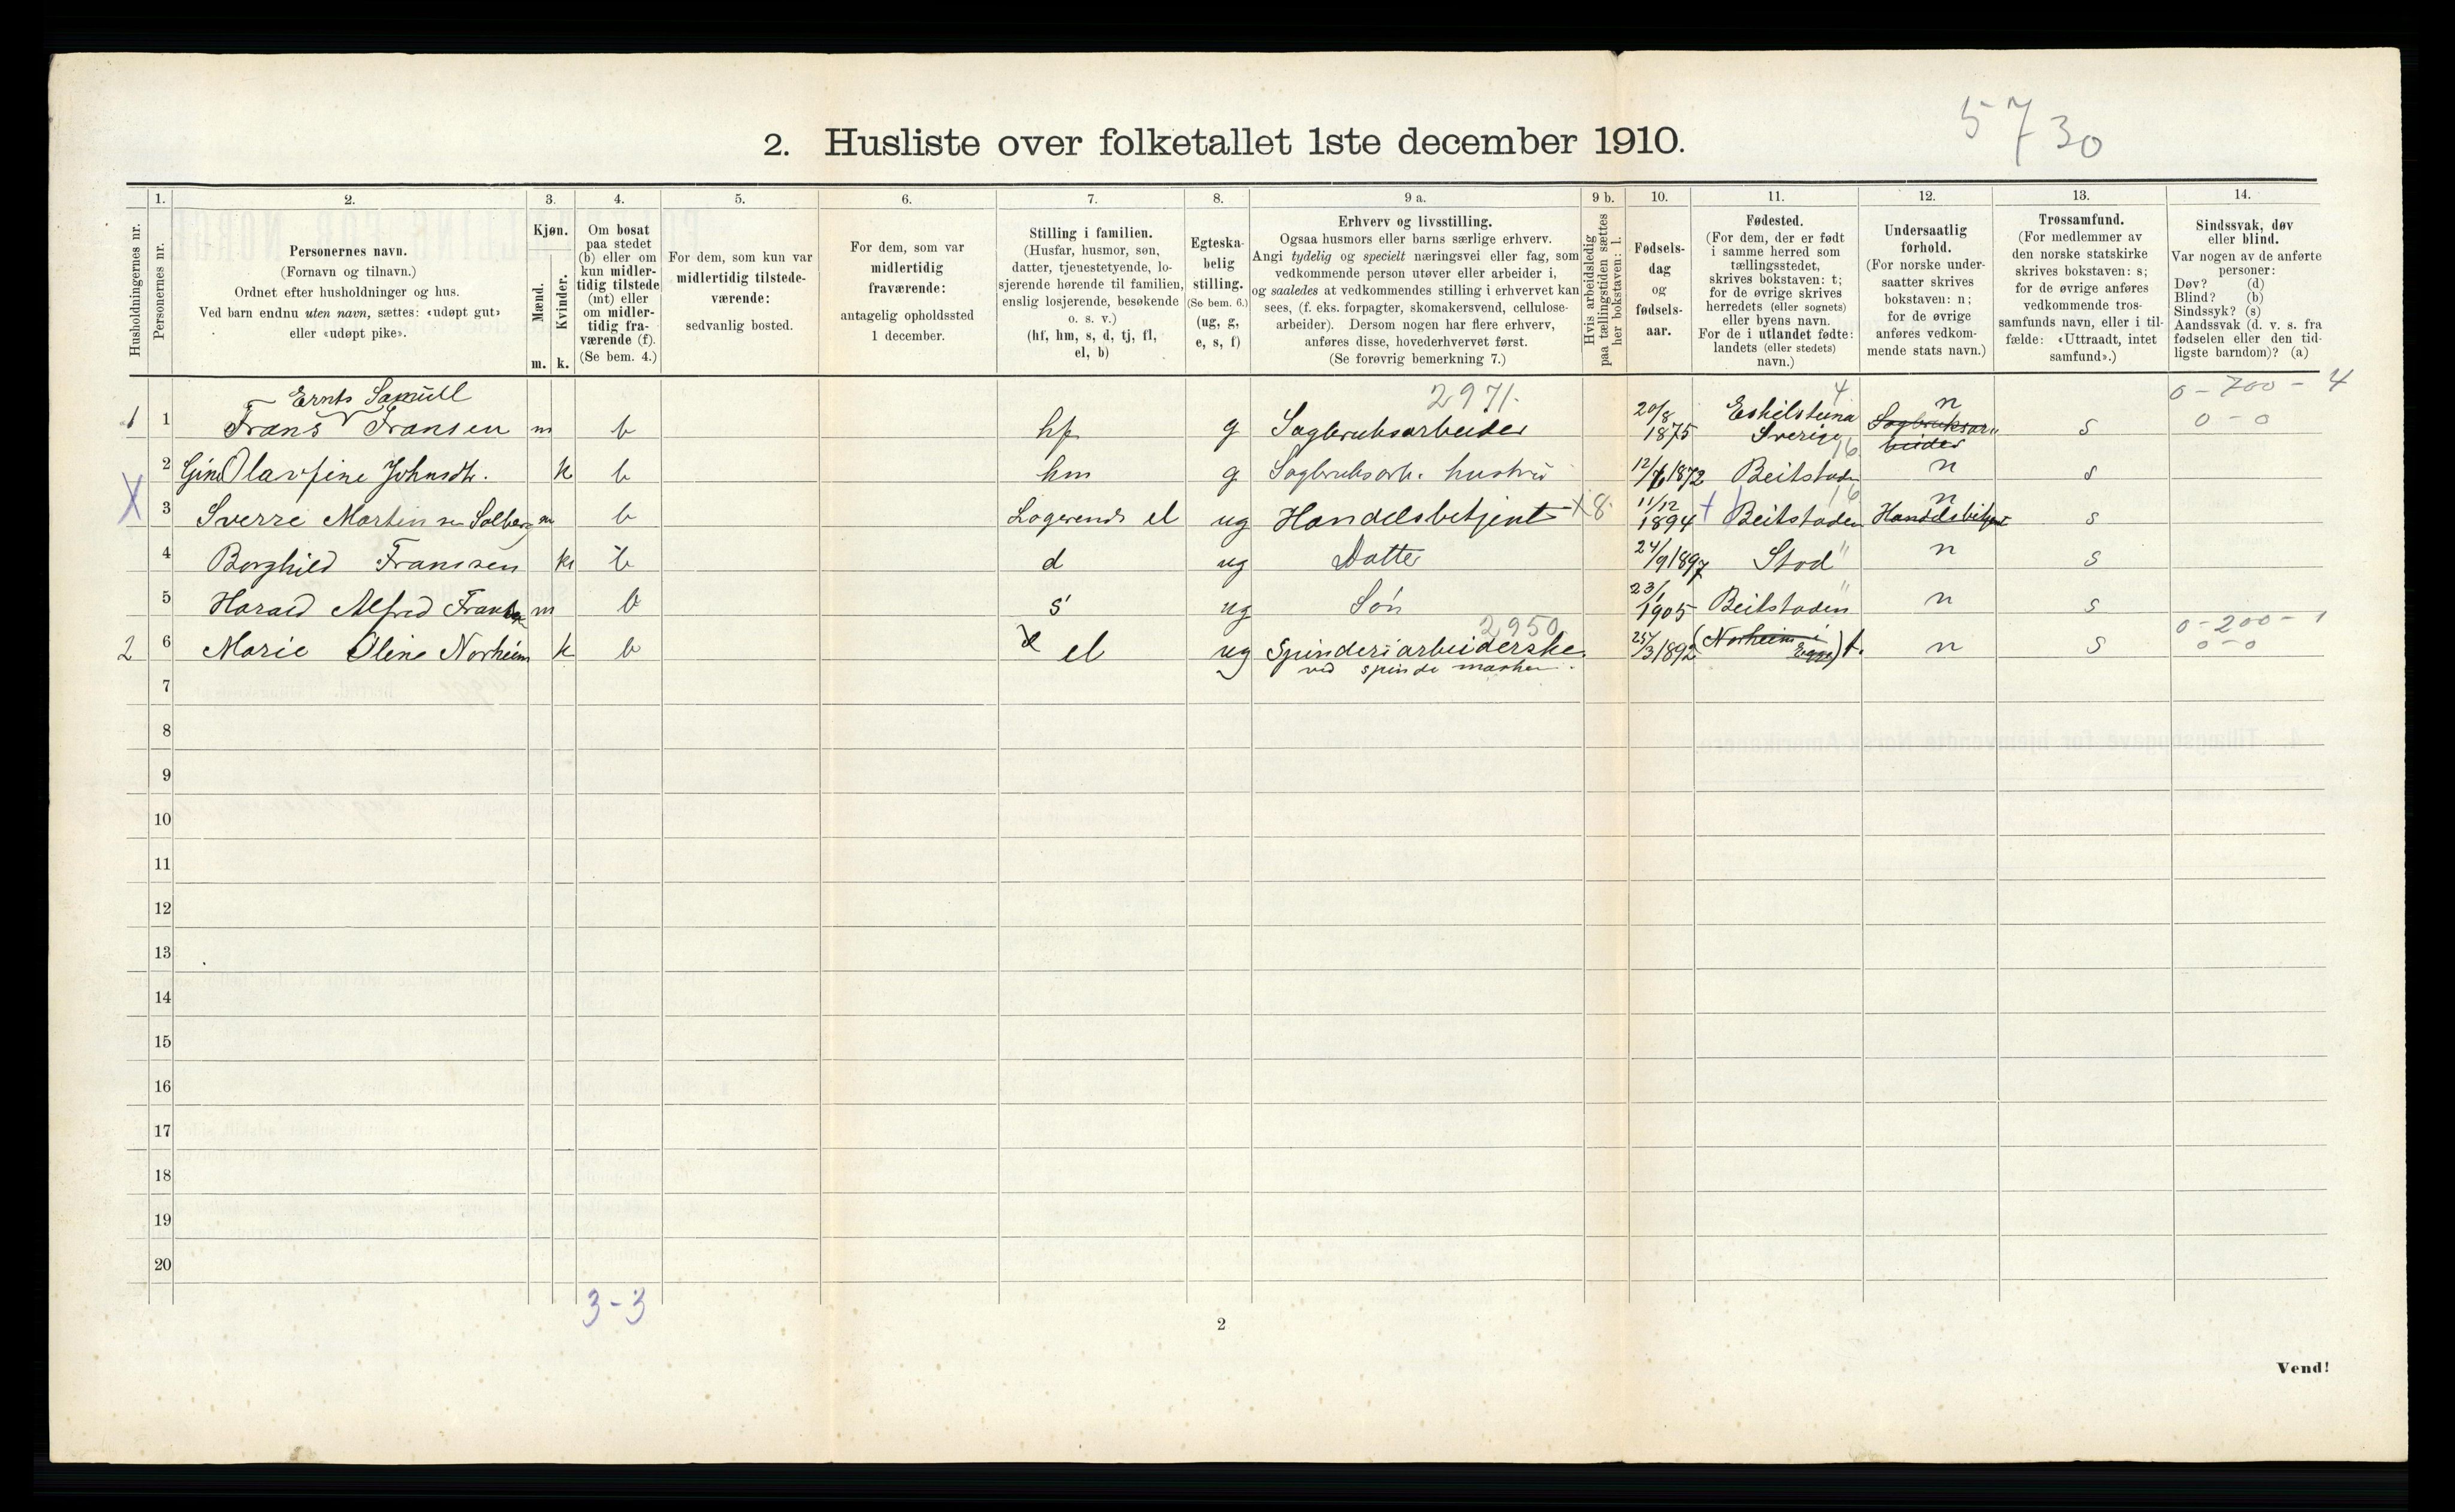 5730
2. Husliste over folketallet 1ste december 1910.
Husholdningernes nr.
1. Personernes nr.
2. Personernes navn.
(Fornavn og tilnavn.)
Ordnet efter husholdninger og hus.
Ved barn endnu uten navn, sættes: «udøpt gut»
eller «udøpt pike».
3. Kjøn.
Mænd. m.
Kvinder. k.
4. Om bosat
paa stedet
(b) eller om
kun midler-
tidig tilstede
(mt) eller
om midler-
tidig fra-
værende (f).
(Se bem. 4.)
5. For dem, som kun var
midlertidig tilstede-
værende:
sedvanlig bosted.
6. For dem, som var
midlertidig
fraværende:
antagelig opholdssted
1 december.
7. Stilling i familien.
(Husfar, husmor, søn,
datter, tjenestetyende, lo-
sjerende hørende til familien,
enslig losjerende, besøkende
o. s. v.)
(hf, hm, s, d, tj, fl,
el, b)
8. Egteska-
belig
stilling.
(Se bem. 6.)
(ug, g,
e, s, f)
9 a. Erhverv og livsstilling.
Ogsaa husmors eller barns særlige erhverv.
Angi tydelig og specielt næringsvei eller fag, som
vedkommende person utøver eller arbeider i,
og saaledes at vedkommendes stilling i erhvervet kan
sees, (f. eks. forpagter, skomakersvend, cellulose-
arbeider). Dersom nogen har flere erhverv,
anføres disse, hovederhvervet først.
(Se forøvrig bemerkning 7.)
9 b. Hvis arbeidsledig
paa tællingstiden sættes
her bokstaven: l.
10. Fødsels-
dag
og
fødsels-
aar.
11. Fødested.
(For dem, der er født
i samme herred som
tællingsstedet,
skrives bokstaven: t;
for de øvrige skrives
herredets (eller sognets)
eller byens navn.
For de i utlandet fødte:
landets (eller stedets)
navn.)
12. Undersaatlig
forhold.
(For norske under-
saatter skrives
bokstaven: n;
for de øvrige
anføres vedkom-
mende stats navn.)
13. Trossamfund.
(For medlemmer av
den norske statskirke
skrives bokstaven: s;
for de øvrige anføres
vedkommende tros-
samfunds navn, eller i til-
fælde: «Uttraadt, intet
samfund».)
14. Sindssvak, døv
eller blind.
Var nogen av de anførte
personer:
Døv? (d)
Blind? (b)
Sindssyk? (s)
Aandssvak (d. v. s. fra
fødselen eller den tid-
ligste barndom)? (a)
Ernts Samuel 2971. 4 n 0-700-4
1 1 Frans Fransen m b hf g Sagbruksarbeider 20/8 1875 Eskilstuna Sverige Sagbruksar beider s 0-0
2 Gine Olavfine Johnsdtr. k b hm g Sagbruksarb. hustru 12/6 1872 Beitstaden 16 n s
X 3 Sverre Martin Solberg m b Logerende el ug Handelsbetjent X 8 11/12 1894 + Beitstaden 16 n Handelsbetjent s
4 Borghild Fransen k b d ug Datter 24/9 1897 Stod " n s
5 Harald Alfred Fransen m b s ug Søn 23/1 1905 Beitstaden " n s
2950 0-200-1
2 6 Marie Oline Norheim k b el ug Spinderiarbeiderske 25/3 1892 (Norheim i Egge) t. n s 0-0
ved spinde maskin.
7
8
9
10
11
12
13
14
15
16
17
18
19
20
3-3
2
Vend!